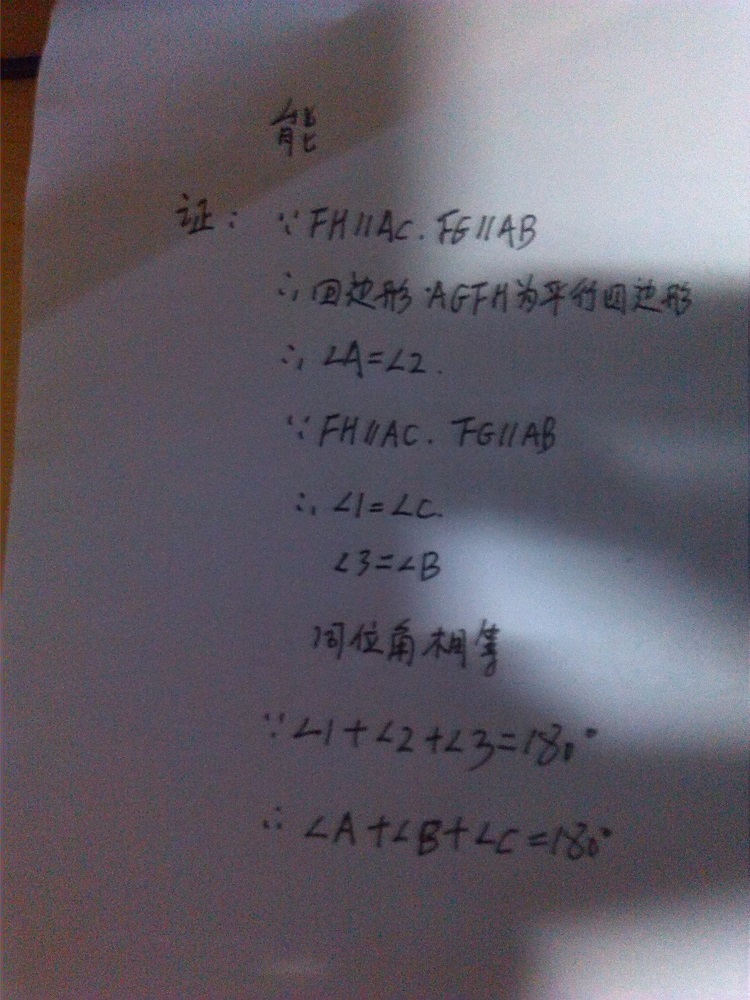 能
证: ∵FH∥AC. FG∥AB
∴四边形AGFH为平行四边形
∴∠A=∠2.
∵FH∥AC. FG∥AB
∴∠1=∠C.
∠3=∠B
同位角相等
∵∠1+∠2+∠3=180°
∴∠A+∠B+∠C=180°